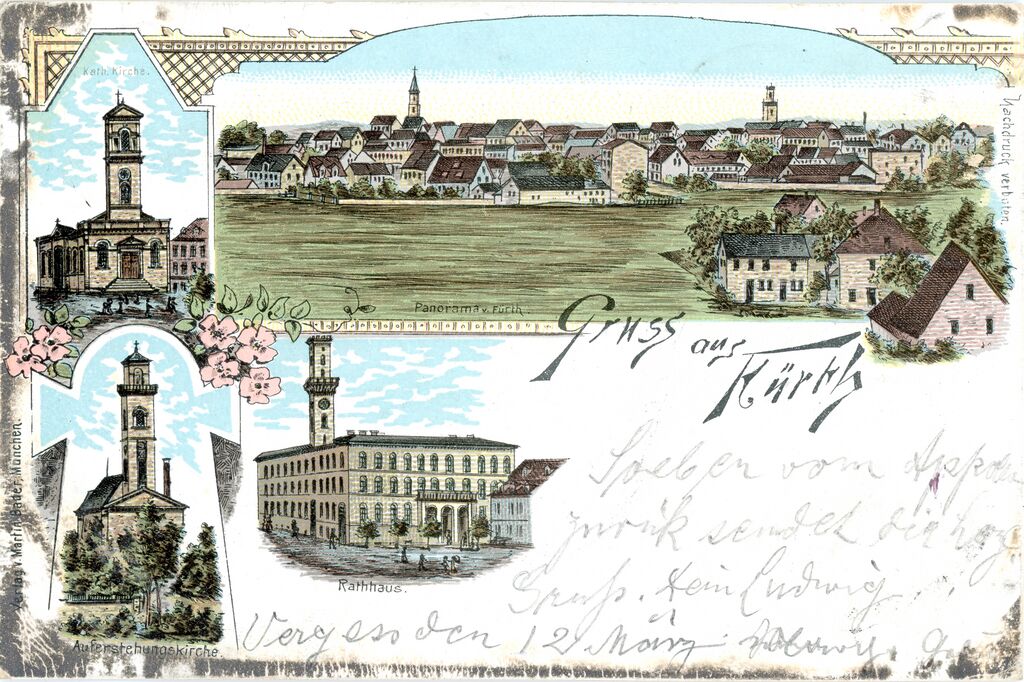 Kath. Kirche.
Nachdruck verboten.
Panorama v. Fürth.
Gruss aus Fürth
Verlag v. Martin Bauer, München.
Rathhaus.
Auferstehungskirche.
Soeben vom
zurük sendet dir
Gruß. Dein Ludwig
den 12 März